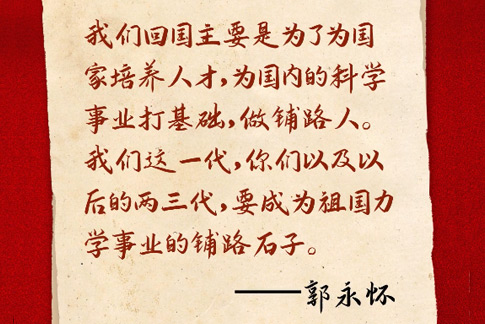 我们回国主要是为了为国
家培养人才,为国内的科学
事业打基础,做铺路人。
我们这一代,你们以及以
后的两三代,要成为祖国力
学事业的铺路石子。
——郭永怀